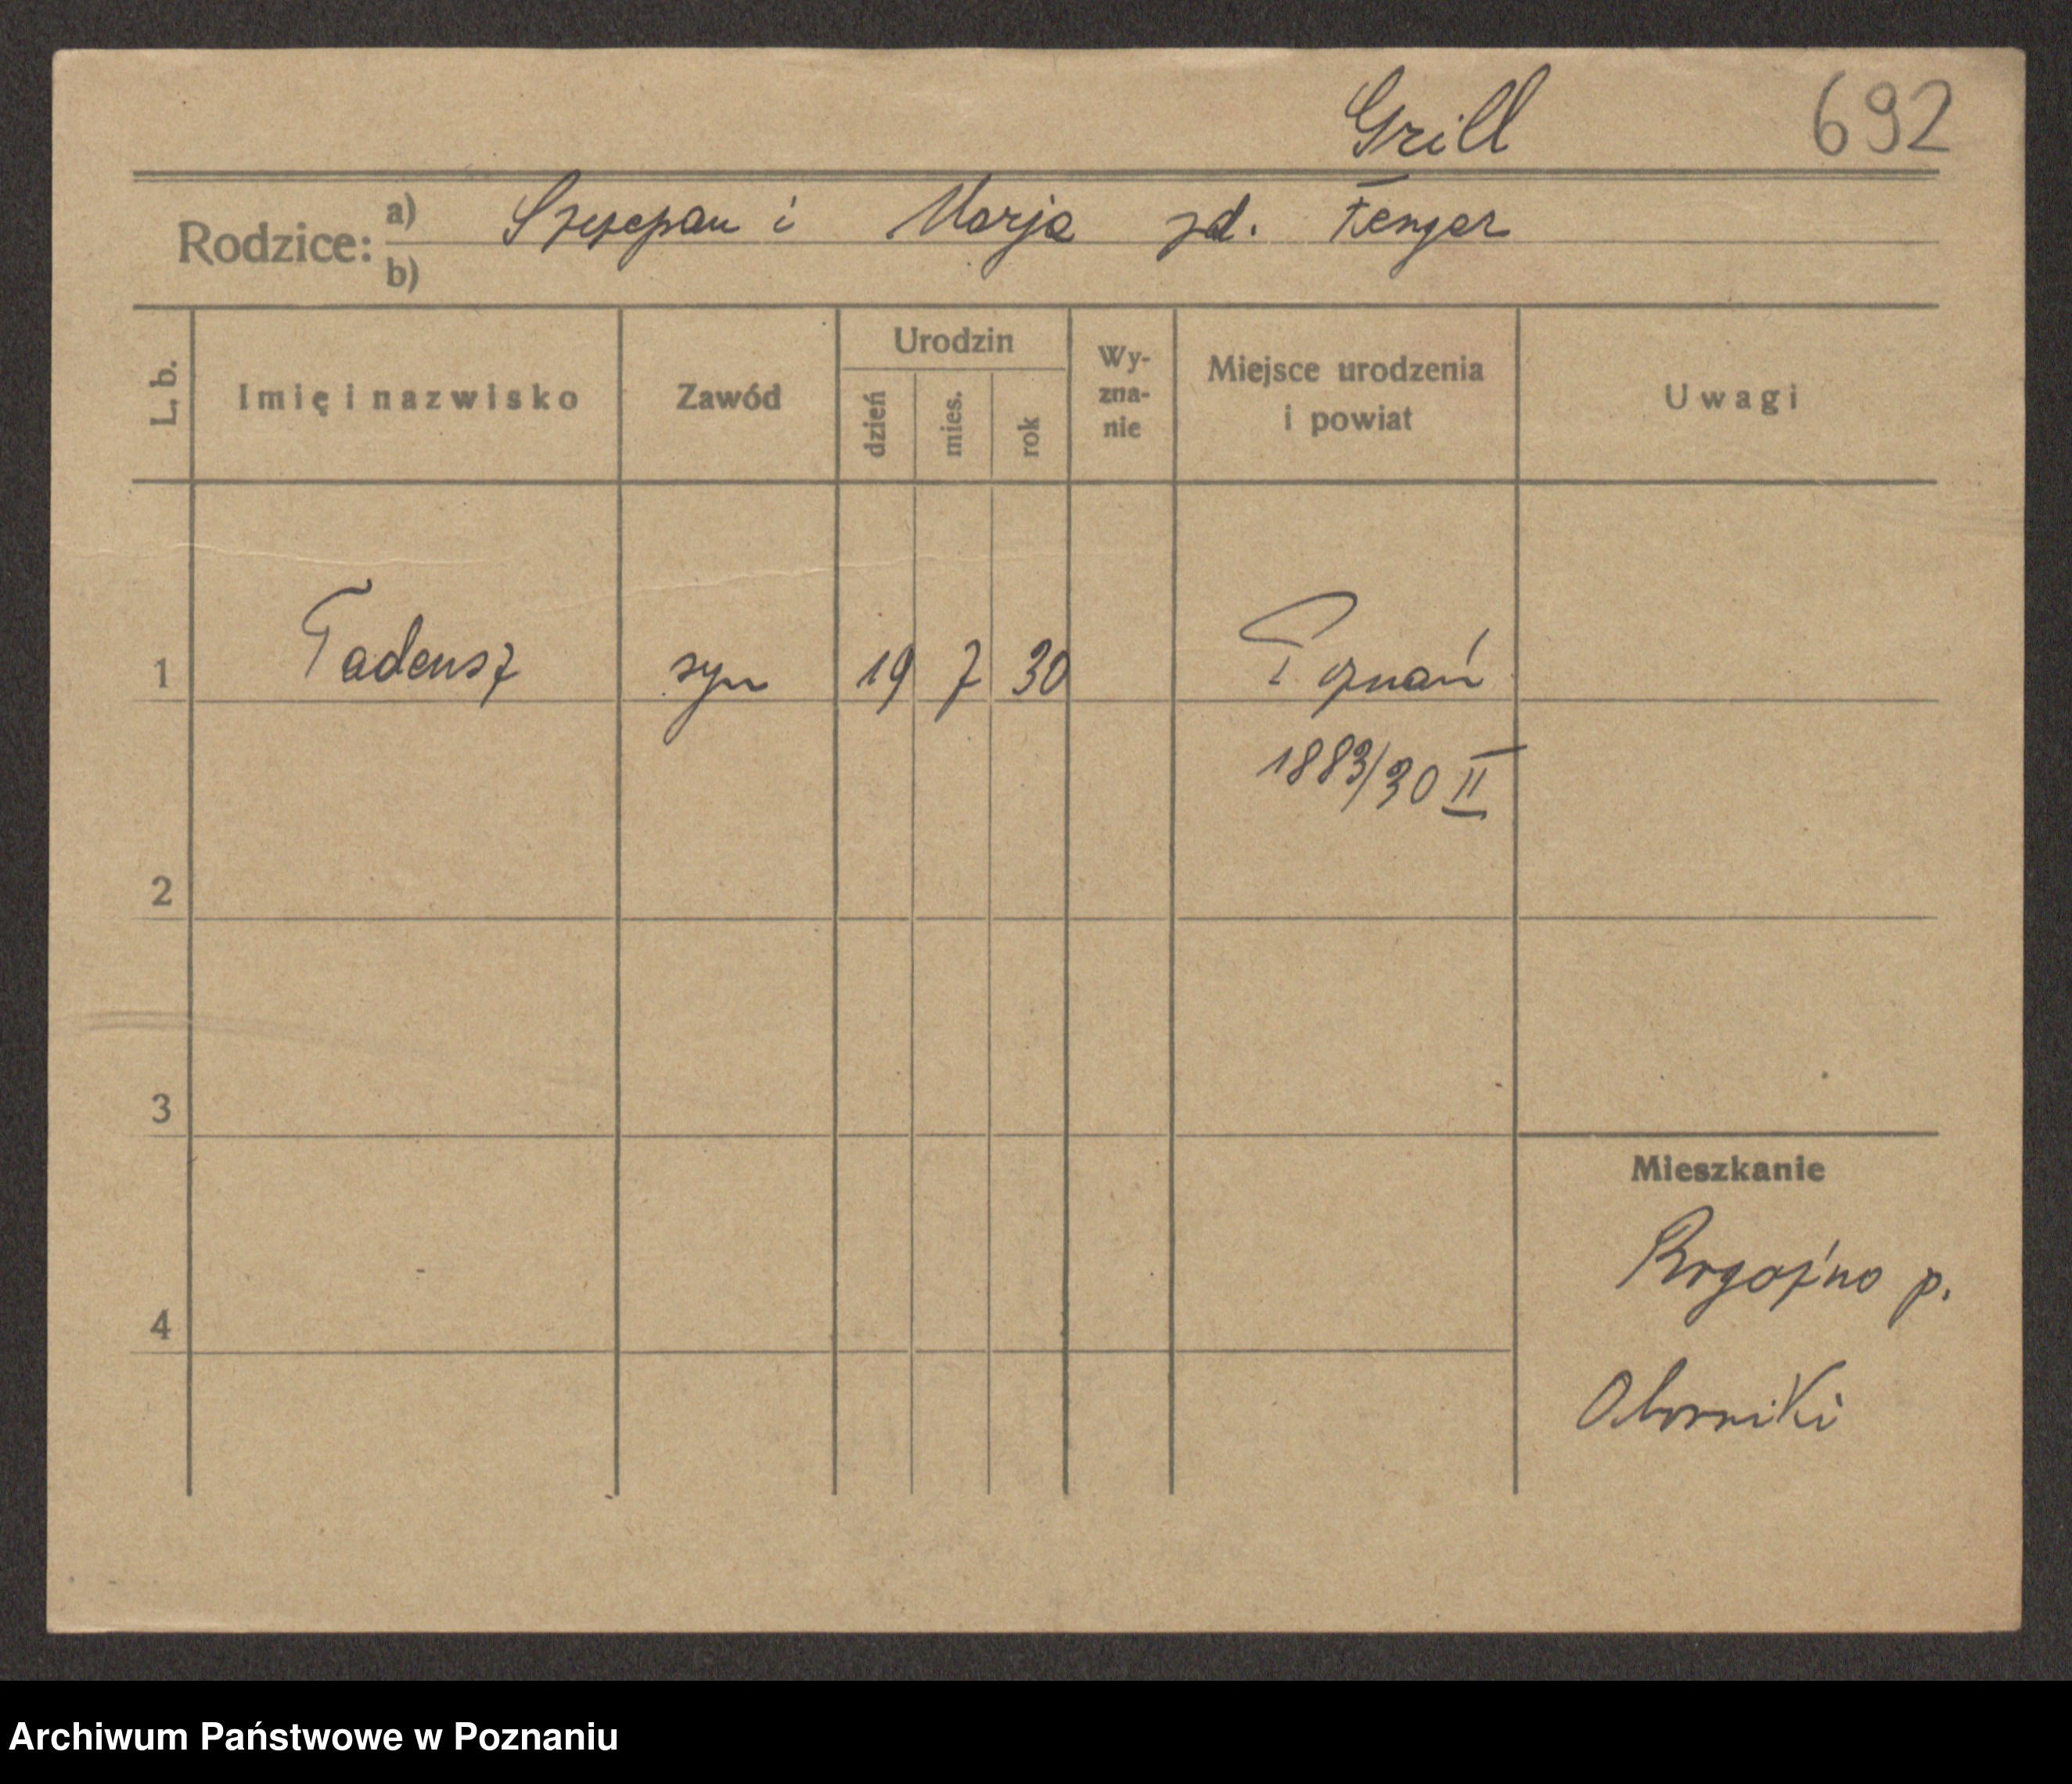 Grill 692
Rodzice: a) Szczepan i Marja zd. Fenger
b)
L. b. Imię i nazwisko Zawód Urodzin dzień mies. rok Wy-zna-nie Miejsce urodzenia i powiat Uwagi
1 Tadeusz syn 19 7 30 Poznań
1883/30 II
2
3
Mieszkanie
Rogoźno p.
4
Oborniki
Archiwum Państwowe w Poznaniu